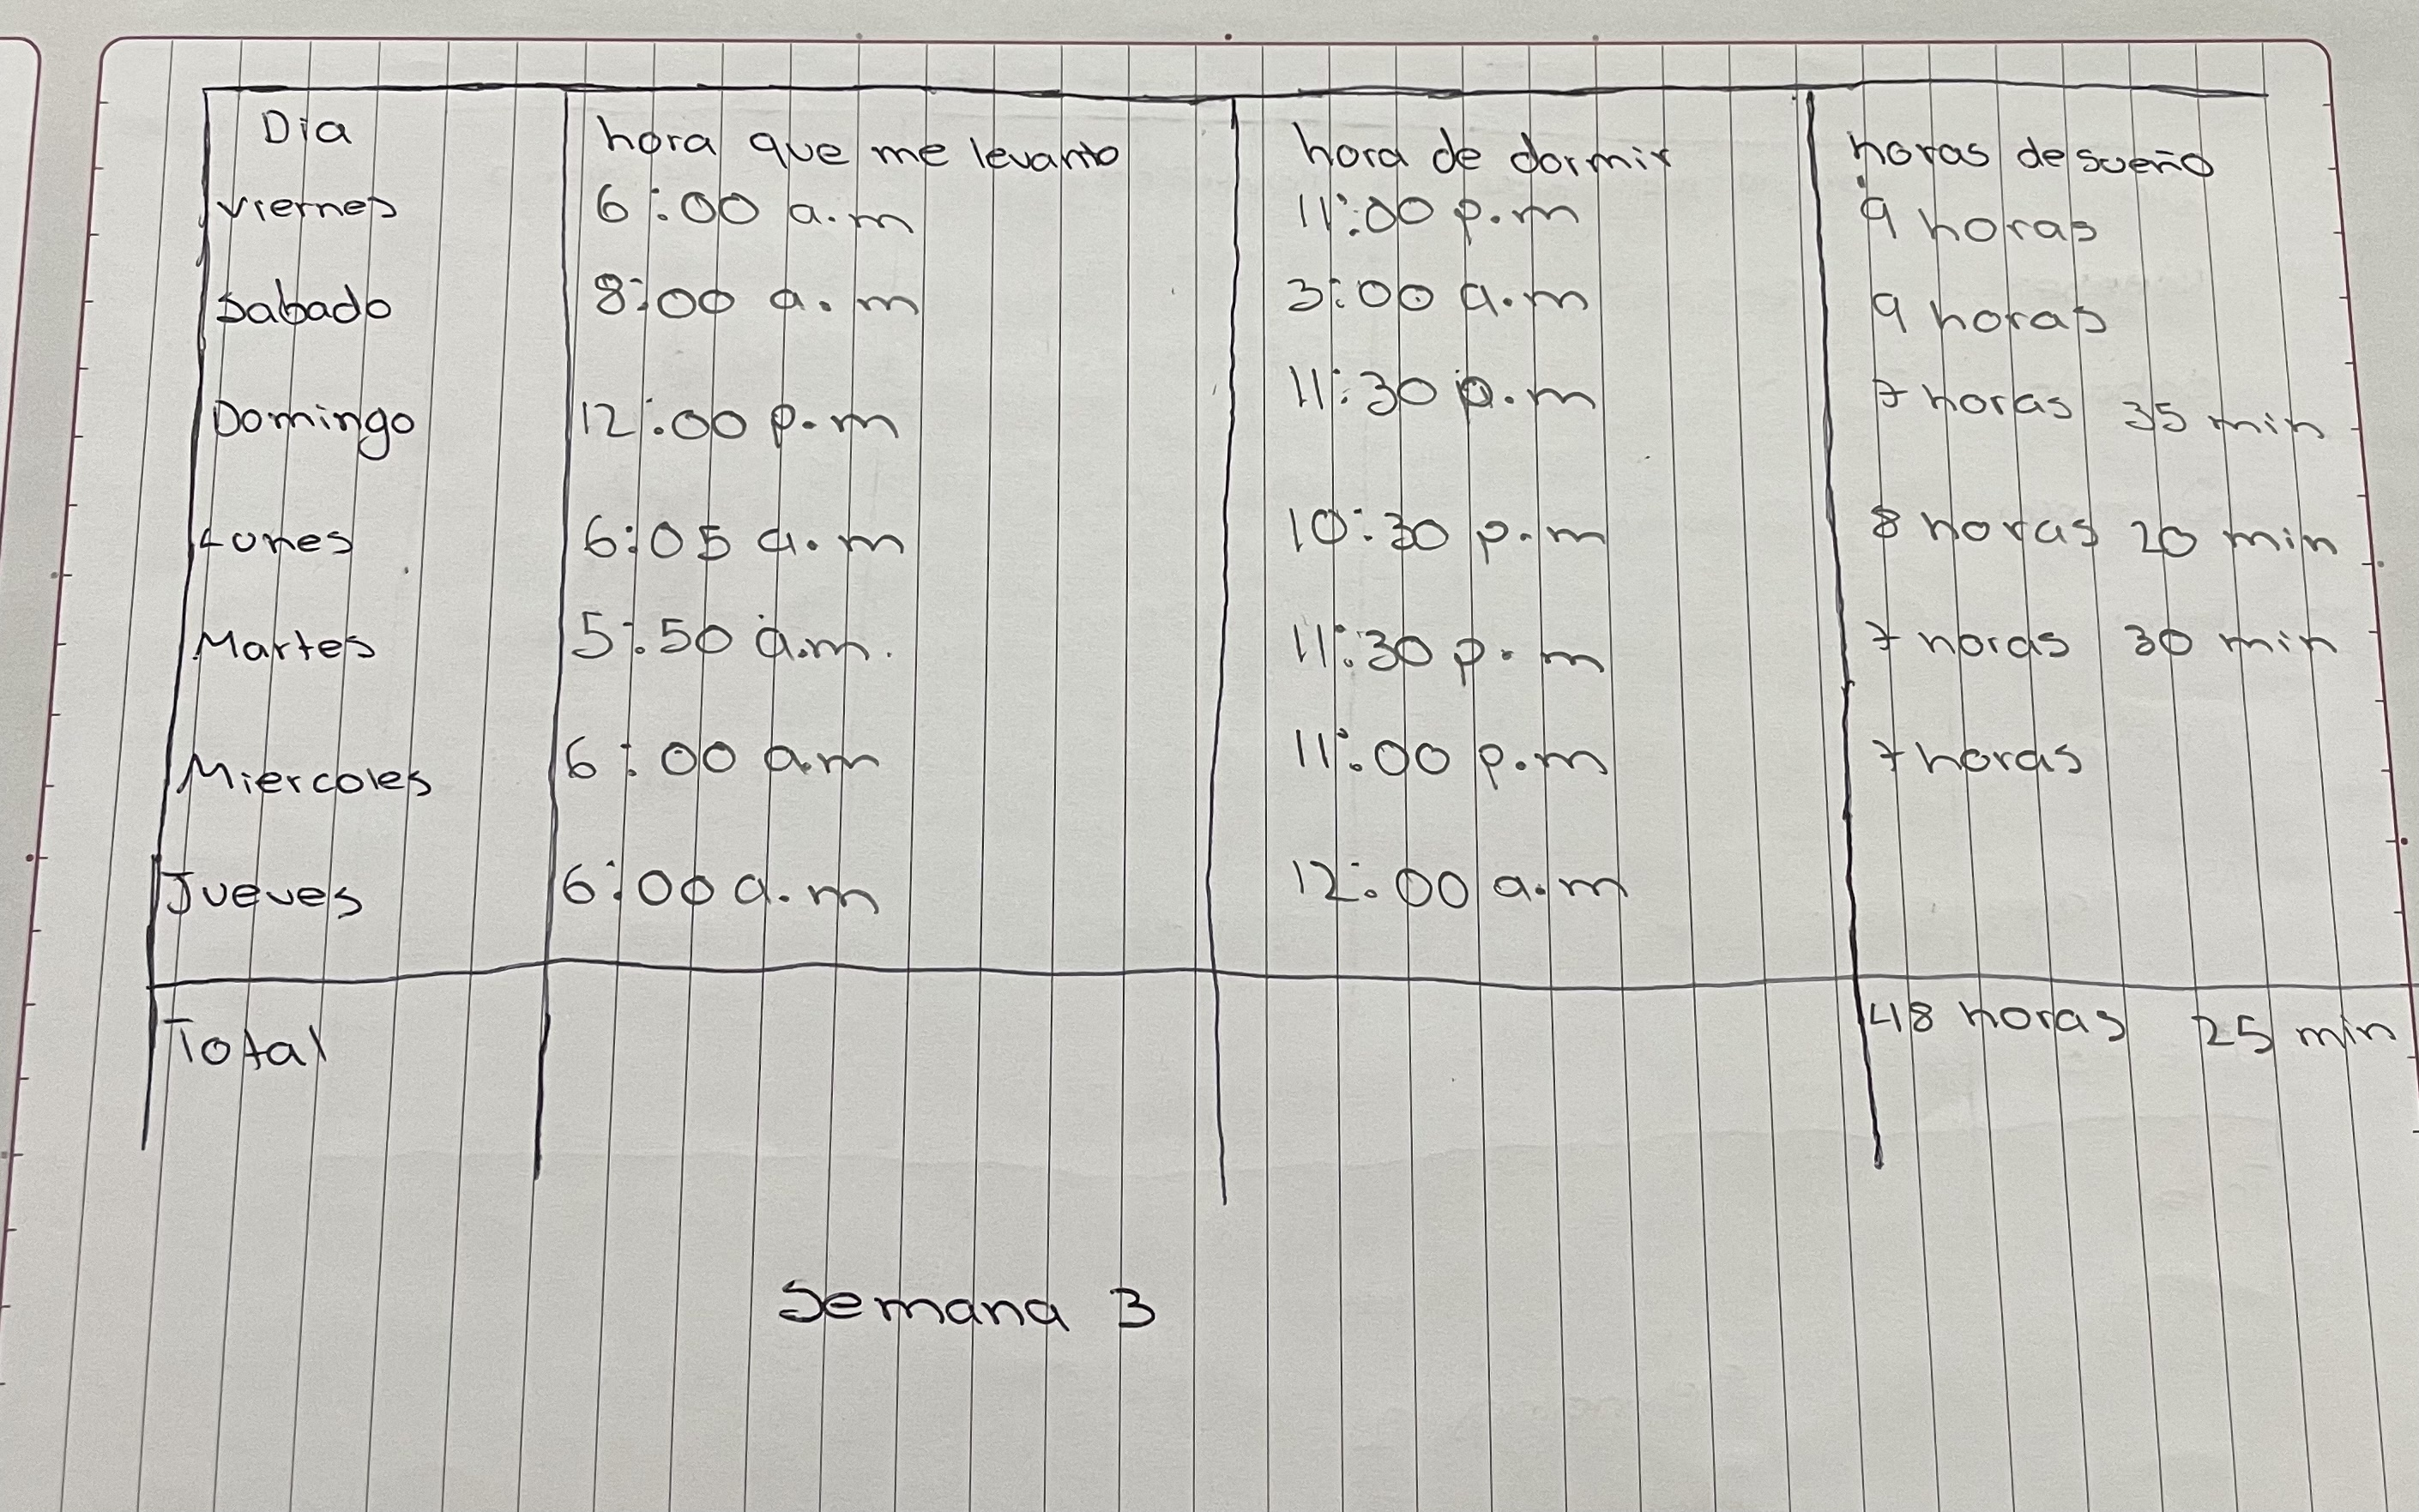 Dia hora que me levanto hora de dormir horas de sueño
viernes 6:00 a.m 11:00 p.m 9 horas
Sabado 8:00 a.m 3:00 a.m 9 horas
Domingo 12:00 p.m 11:30 p.m 7 horas 35 min
Lunes 6:05 a.m 10:30 p.m 8 horas 20 min
Martes 5:50 a.m. 11:30 p.m 7 horas 30 min
Miercoles 6:00 a.m 11:00 p.m 7 horas
Jueves 6:00 a.m 12:00 a.m
Total 48 horas 25 min
Semana 3